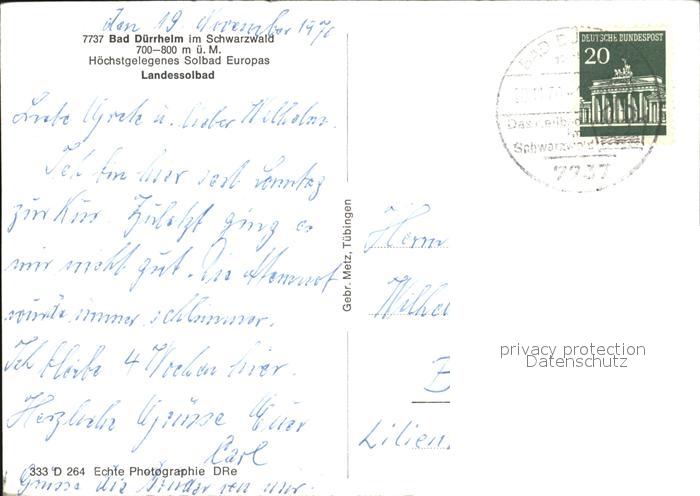 den 19. November 1970
7737 Bad Dürrheim im Schwarzwald
700–800 m ü. M.
Höchstgelegenes Solbad Europas
Landessolbad
Liebe Grete u. lieber Wilhelm.
Ich bin hier seit Sonntag
zur Kur. Zuletzt ging es
mir nicht gut. Die Atemnot
wurde immer schlimmer.
Ich bleibe 4 Wochen hier.
Herzliche Grüsse Euer
Carl
Grüsse die Kinder von mir.
333 D 264 Echte Photographie DRe
Gebr. Metz, Tübingen
DEUTSCHE BUNDESPOST
20
BAD
Schwarzwald
7737
Herrn
Wilhel
Lilien
privacy protection
Datenschutz